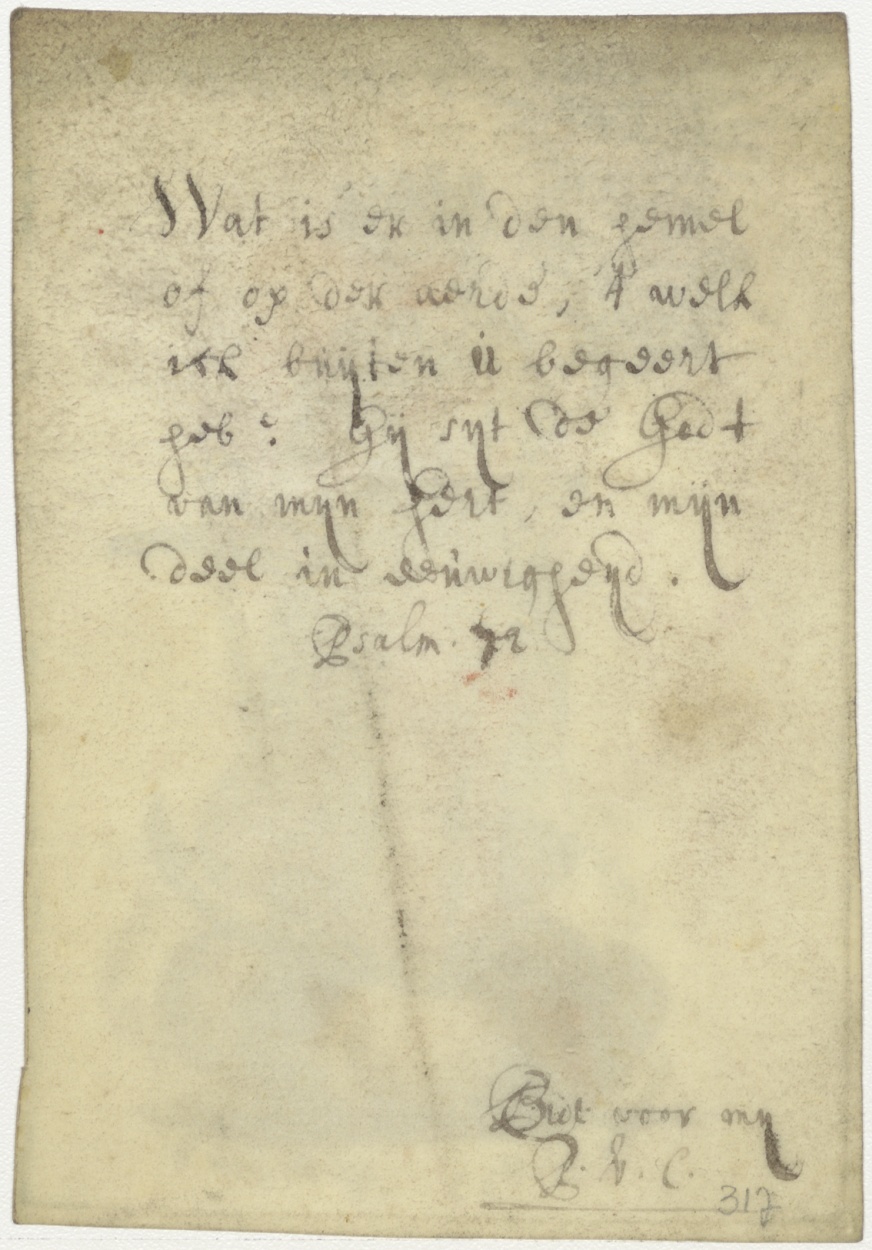 Wat is er in den hemel
of op der aerde, 't welk
ick buijten ú begeert
heb? Ghij sijt de Godt
van mijn hert, en mijn
deel in eeúwigheijd.
Psalm. 72
Bidt voor mij
P. V. C.
317